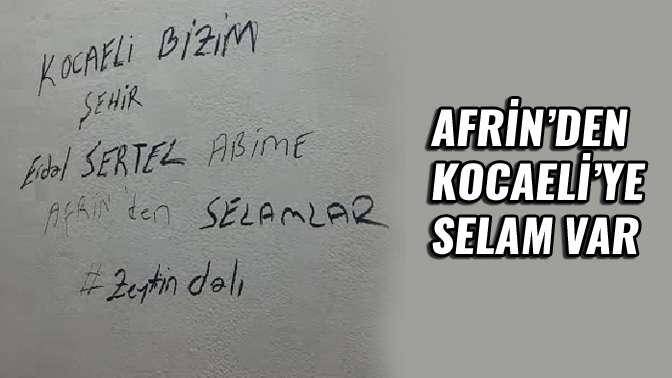 KOCAELİ BİZİM
ŞEHİR
Erdal SERTEL ABİME
AFRİN'den SELAMLAR
#Zeytin dalı
AFRİN'DEN
KOCAELİ'YE
SELAM VAR